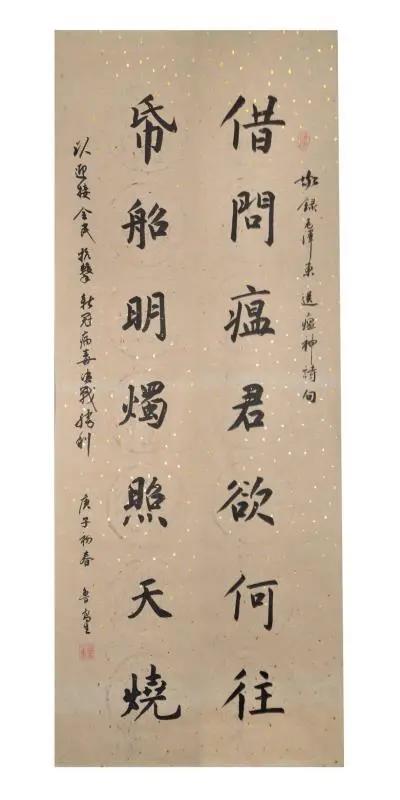 敬録毛澤東送瘟神詩句
借問瘟君欲何往
帋船明燭照天燒
以迎接全民抗擊新冠病毒决戰勝利
庚子初春